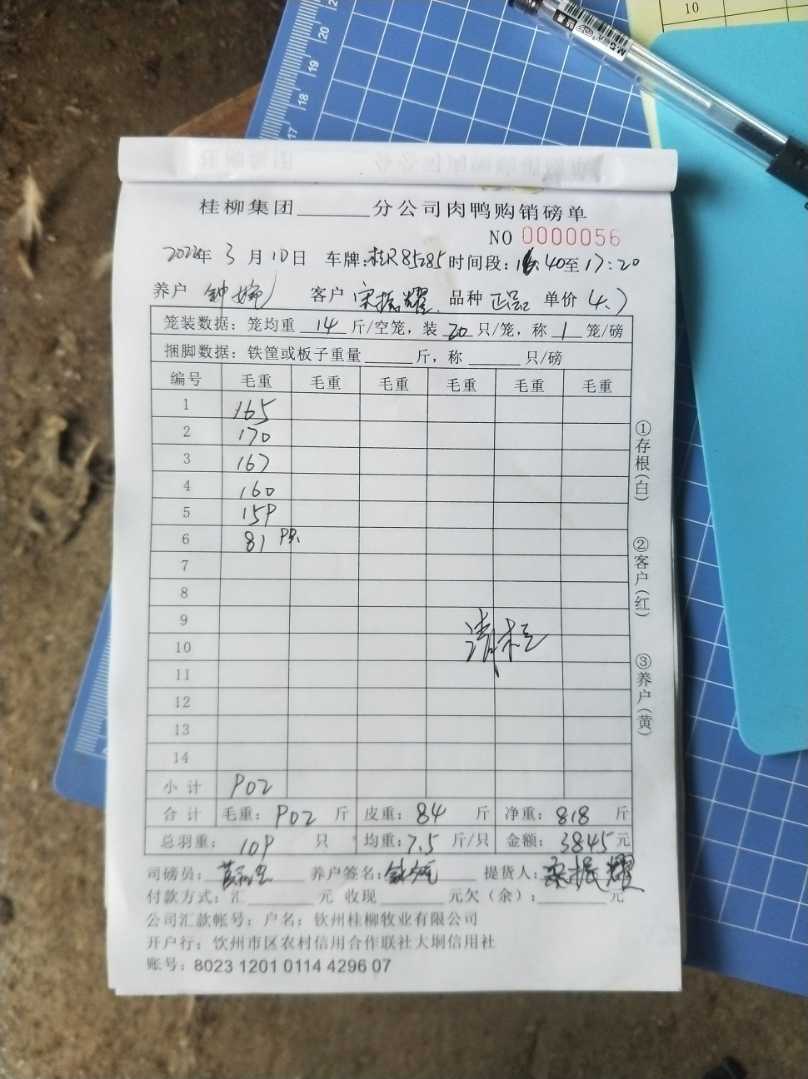 10
20
19
18
17
桂柳集团______分公司肉鸭购销磅单
NO 0000056
3月10日 车牌:桂R85285 时间段:16:40至17:20
养户 钟 客户 宋振耀 品种 正品 单价 4.7
笼装数据:笼均重 14 斤/空笼,装 20 只/笼,称 1 笼/磅
捆脚数据:铁筐或板子重量______斤,称______只/磅
编号 毛重 毛重 毛重 毛重 毛重 毛重
1 165
2 170
3 167
4 160
5 159
6 81 9只
7
8
9
10
11
12
13
14
小计 902
合计 毛重:902斤 皮重:84斤 净重:818斤
总羽重:109只 均重:7.5斤/只 金额:3845元
司磅员: 养户签名: 提货人:宋振耀
付款方式:汇______元 收现______元欠(余):______元
公司汇款帐号:户名:钦州桂柳牧业有限公司
开户行:钦州市区农村信用合作联社大垌信用社
账号:8023 1201 0114 4296 07
①存根(白)
②客户(红)
③养户(黄)